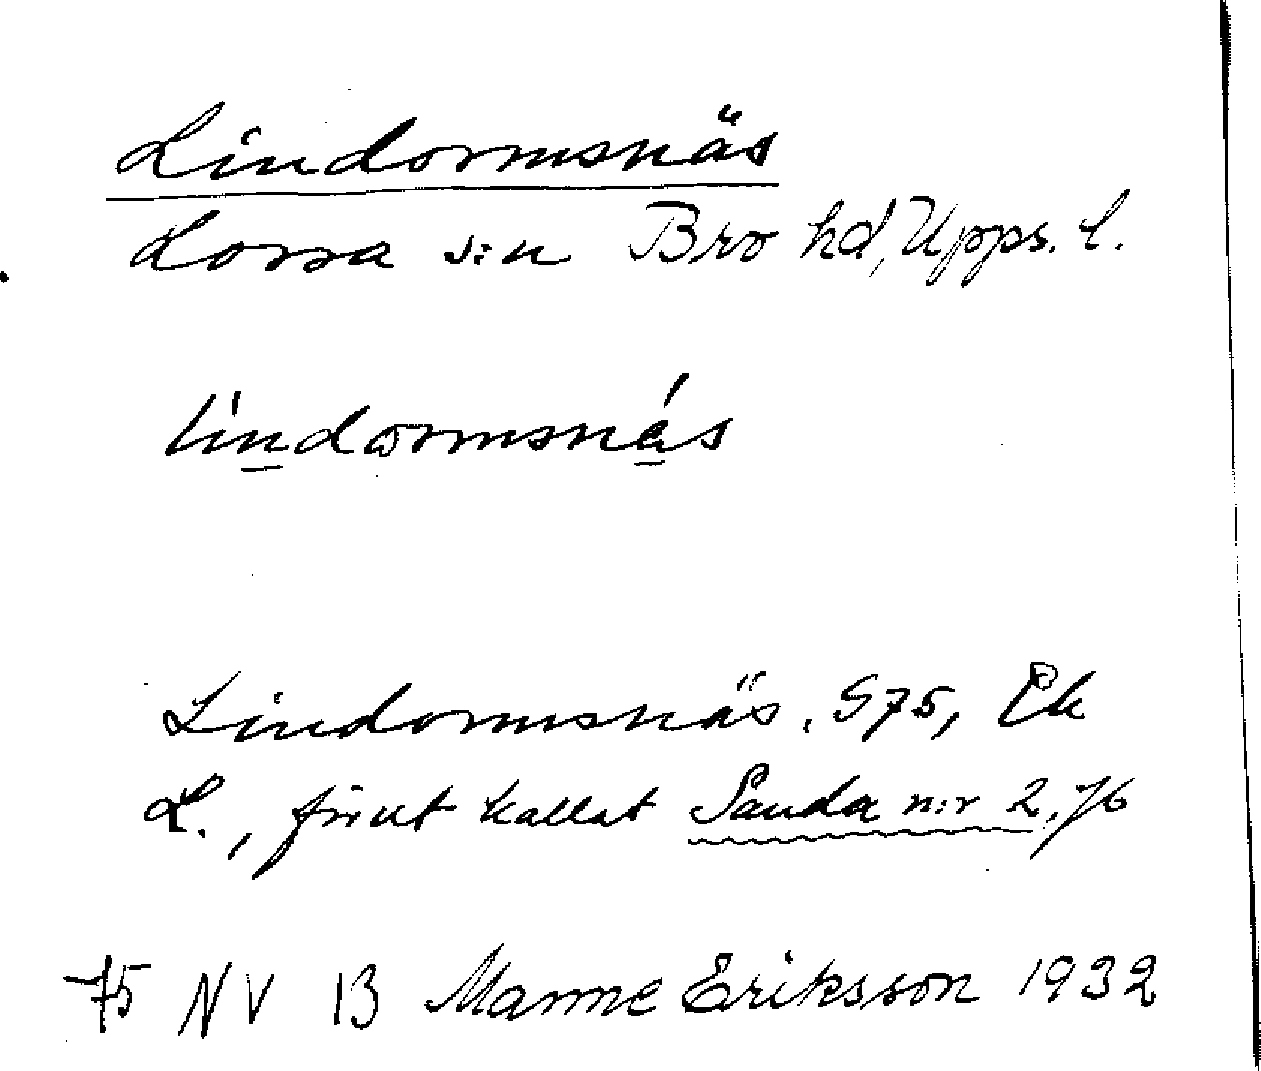 Lindormsnäs
Lossa s:n Bro hd, Upps. l.
lindormsnä́s
Lindormsnäs. S75, Ek
L., förut kallat Sanda n:r 2, J6
75 NV 13 Manne Eriksson 1932